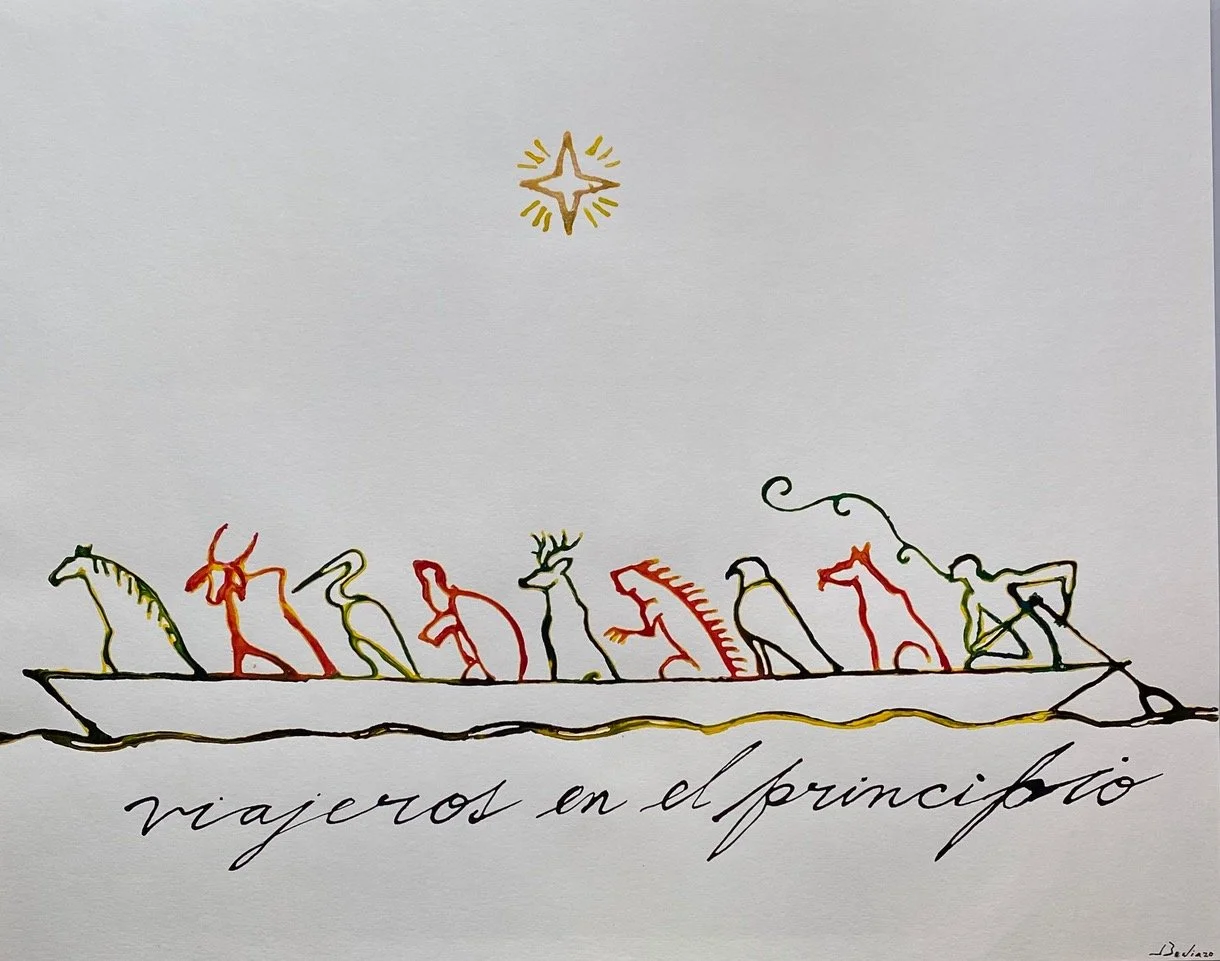 viajeros en el principio